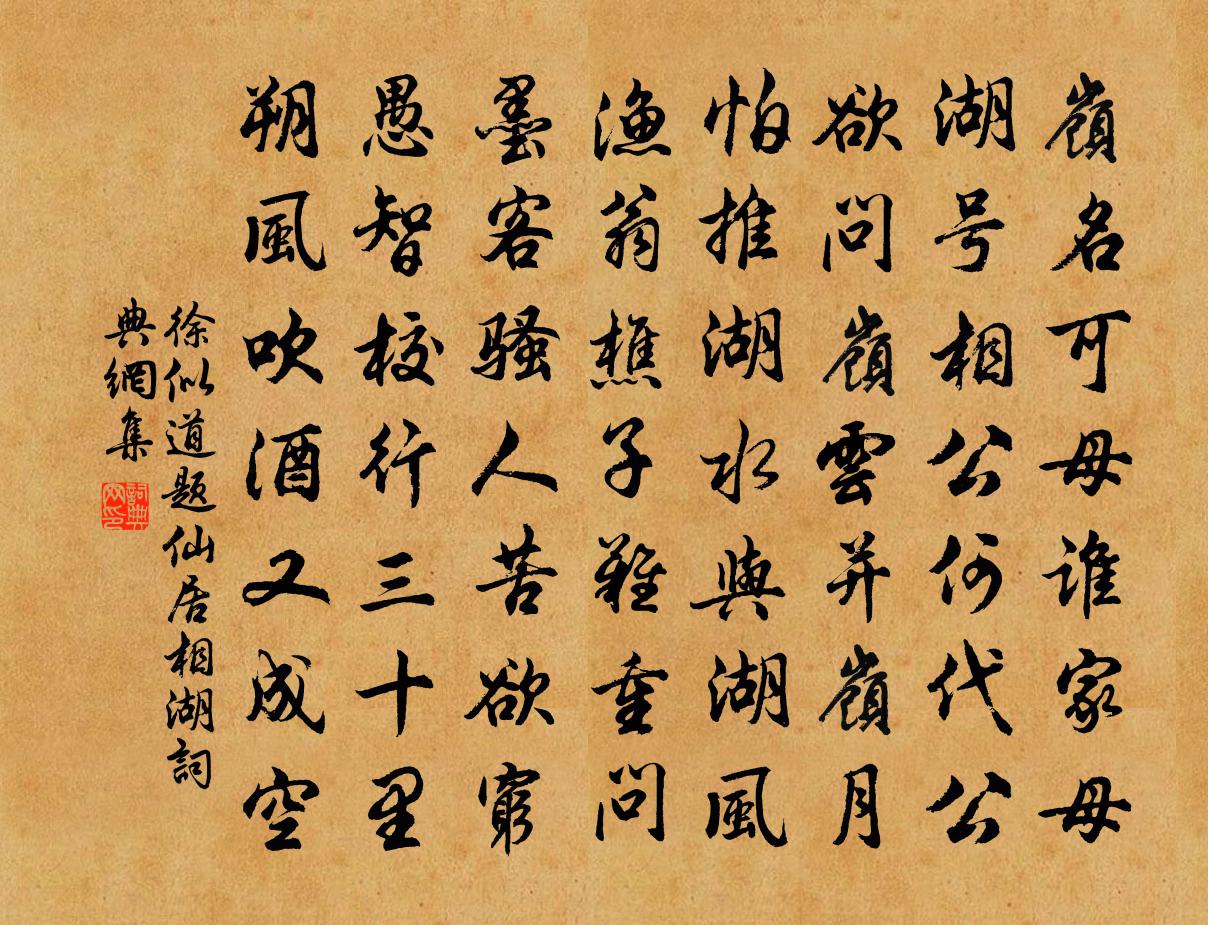 嶺名可母誰家母
湖号相公何代公
欲問嶺雲并嶺月
怕推湖水與湖風
漁翁樵子難重問
墨客騷人苦欲窮
愚智校行三十里
朔風吹酒又成空
徐似道題仙居相湖詞
典網集
詞典
网印